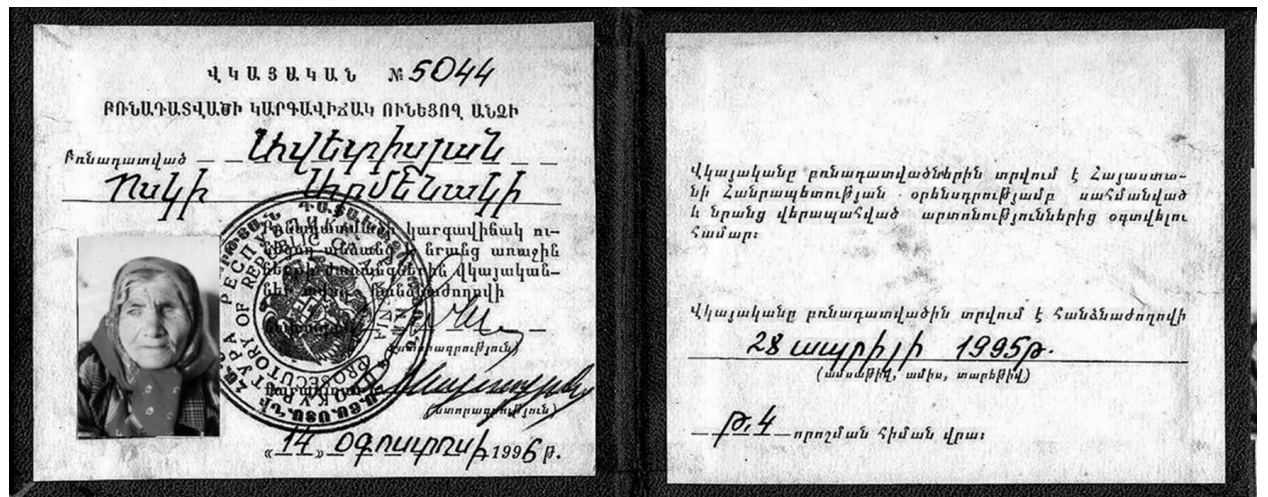 ՎԿԱՅԱԿԱՆ № 5044
ԲՌՆԱԴԱՏՎԱԾԻ ԿԱՐԳԱՎԻՃԱԿ ՈՒՆԵՑՈՂ ԱՆՁԻ
Բռնադատված Ավետիսյան
Ոսկի Արմենակի
Բռնադատվածի կարգավիճակ ու-
նեցող անձանց և նրանց առաջին
հերթի ժառանգներին վկայական-
ներ տվող հանձնաժողովի
(ստորագրություն)
(ստորագրություն)
«14» օգոստոսի 1996 թ.
Վկայականը բռնադատվածներին տրվում է Հայաստա-
նի Հանրապետության օրենսդրությամբ սահմանված
և նրանց վերապահված արտոնություններից օգտվելու
համար:
Վկայականը բռնադատվածին տրվում է հանձնաժողովի
28 ապրիլի 1995թ.
(ամսաթիվ, ամիս, տարեթիվ)
թ.4 որոշման հիման վրա: